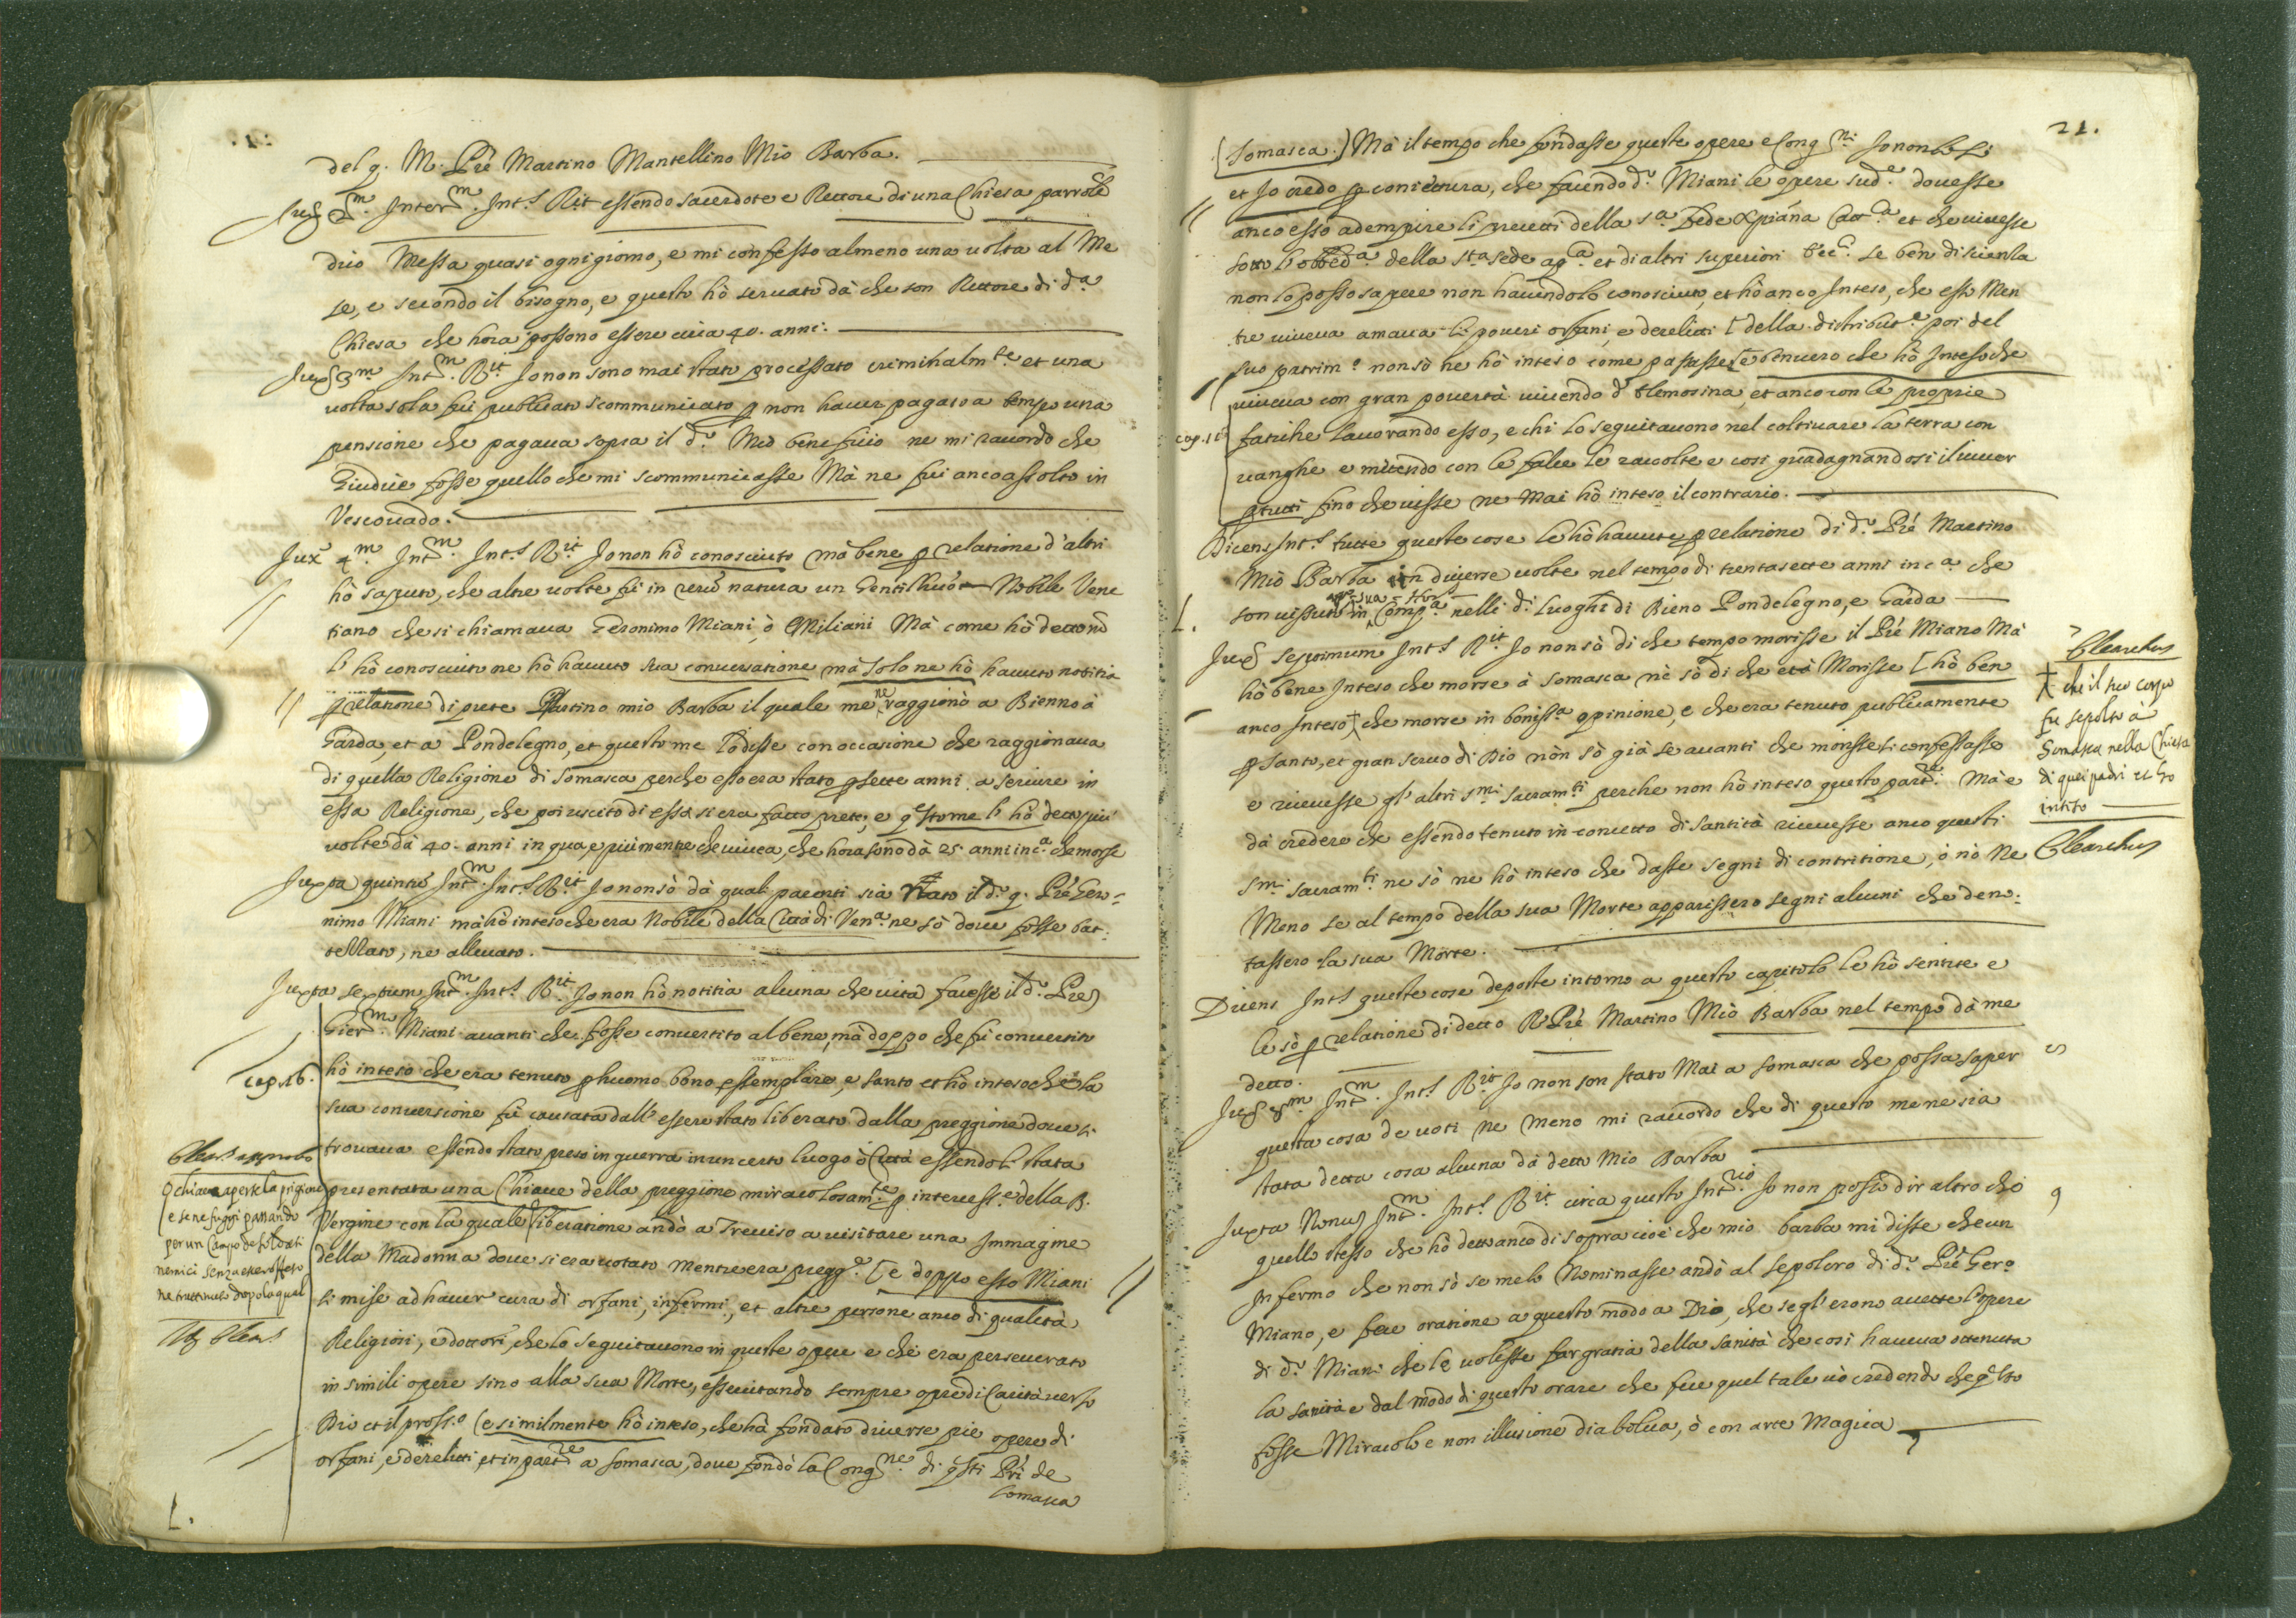 del q. M. Pre Martino Mantellino Mio Barba.
Jux 2m. Interm. Ints Rit essendo sacerdote e Rettore di una Chiesa parrole
dico Messa quasi ogni giorno, e mi confesso almeno una volta al Me
se, e secondo il bisogno, e questo hò servato dà che son Rettore di da
Chiesa che hora possono essere circa 40. anni.
Jux 3m Intm. Rit Jo non sono mai stato processato criminalmte et una
volta sola fui publicato scommunicato p non haver pagato a tempo una
pensione che pagava sopra il do. Mio beneficio ne mi raccordo che
Giudice fosse quello che mi scommunicasse Mà ne fui anco assolto in
Vescovado.
Jux 4m Intm. Ints Rit Jo non hò conosciuto mà bene p relatione d'altri
hò saputo, che altre volte fù in rerũ natura un Gentilhuo Nobile Vene
tiano che si chiamava Geronimo Miani, ò Emiliani Mà come hò detto nõ
l'hò conosciuto ne hò havuto sua conversatione mà solo ne hò havuto notitia
p relatione di prete Martino mio Barba il quale me ne raggionò a Bienno à
Garda, et a Pondelegno, et questo me lo disse con occasione che raggionava
di quella Religione di Somasca perche esso era stato p sette anni a servire in
essa Religione, che poi uscito di essa si era fatto prete, e qsto me l'hà detto più
volte dà 40. anni in qua, e più mentre che viveva, che hora sono dà 25. anni inca. che morse
Juxta quintũ Intm. Ints Rit Jo non sò dà quali parenti sia stato il do. q. Pre Gero=
nimo Miani mà hò inteso che era Nobile della Città di Vena. ne sò dove fosse bat=
tezzato, ne allevato.
Juxta sextum Intm. Ints Rit Jo non hò notitia alcuna che vita facesse il do. Pre
Gierm. Miani avanti che fosse convertito al bene, mà doppo che fù convertito
cap. 16. hò inteso che era tenuto p huomo bono essemplare, e santo et hò inteso che la
sua conversione fù causata dall'essere stato liberato dalla preggione dove si
trovava essendo stato preso in guerra in un certo luogo ò Città essendoli stata
presentata una Chiave della preggione miracolosamte. p intercesse. della B.
Vergine con la quale liberatione andò a Treviso a visitare una Immagine
della Madonna dove si era votato mentre era pregge. [e doppo esso Miani
si mise ad haver cura di orfani, infermi, et altre persone anco di qualità
Religiosi, e dottori, che lo seguitavono in queste opere e che era perseverato
in simili opere sino alla sua Morte, essercitando sempre opre di Carità verso
Dio et il prosso. (e similmente hò inteso, che hà fondato diverse pie opere di
orfani, e derelitti, et in partre a Somasca, dove fondò la Congne. di qsti Pri de
Somasca
chiave aperse la prigione
e se ne fuggì passando
per un Campo de soldati
nemici senza esser offeso
ne trattenuto dopo la qual
L.
21.
(Somasca.) Mà il tempo che fondasse queste opere e Congni Jo non lo sò
et Jo credo p coniettura, che facendo do. Miani le opere sude. dovesse
anco esso adempire li precetti della sa. Fede Xpiana Catca et che vivesse
sotto l'obbeda. della Sta sede apa. et di altri superiori Ecc. se ben di scienza
non lo posso sapere non havendolo conosciuto, et hò anco Inteso, che esso Men
tre viveva amava li poveri orfani, e derelitti [della distribute. poi del
suo patrimo. non sò ne hò inteso come passasse [e benvero che hò Inteso che
viveva con gran povertà vivendo d'elemosina, et anco con le proprie
cap. 18 fatiche lavorando esso, e chi lo seguitavono nel coltivare la terra con
vanghe e mietendo con le falce le raccolte e cosi guadagnandosi il viver
p tutti fino che visse ne mai hò inteso il contrario.
Dicens Ints tutte queste cose le hò havute p relatione di do. Pre Martino
Mio Barba in diverse volte nel tempo di trentasette anni inca. che
L. son vissuto in sua Compa. nelli di. luoghi di Bieno Pondelegno, e Garda
Jux septimum Ints Rit Jo non sò di che tempo morisse il Pre Miano Mà
hò bene Inteso che morse à Somasca nè sò di che età Morisse [hò ben
anco Inteso che morse in bonissa. opinione, e che era tenuto publicamente
p santo, et gran servo di Dio nòn sò già se avanti che morisse si confessasse
e ricevesse gl'altri smi sacramti perche non hò inteso questo partre. Mà e
dà credere che essendo tenuto in concetto di santità ricevesse anco questi
smi sacramti ne sò ne hò inteso che dasse segni di contritione, ò nò Ne
Meno se al tempo della sua Morte apparissero segni alcuni che deno=
tassero la sua Morte.
che il suo corpo
fu sepolto à
Somasca nella Chiesa
di quei padri et ho
inteso
Dicens Ints queste cose deposte intorno a questo capitolo le hò sentite e
le sò p relatione di detto R. Pre Martino Mio Barba nel tempo dà me
detto.
Jux 8m. Intm. Ints Rit Jo non son stato Mai a Somasca che possa saper
questa cosa de voti ne meno mi raccordo che di questo me ne sia
stata detta cosa alcuna dà detto Mio Barba
Juxta Nonuz Intm. Ints Rit circa questo Intrio Jo non posso dir altro che
quello stesso che hò detto anco di sopra cioè che mio barba mi disse che un
Infermo che non sò se me lo Nominasse andò al sepolcro di do. Pre Gero
Miano, e fece oratione a questo modo a Dio, che se gl'erono accette l'opere
di do. Miani che le volesse far gratia della sanità che cosi haveva ottenuta
la sanità e dal modo di questo orare che fece quel tale vò credendo che qsto
fosse Miracolo e non illusione diabolica, ò con arte Magica